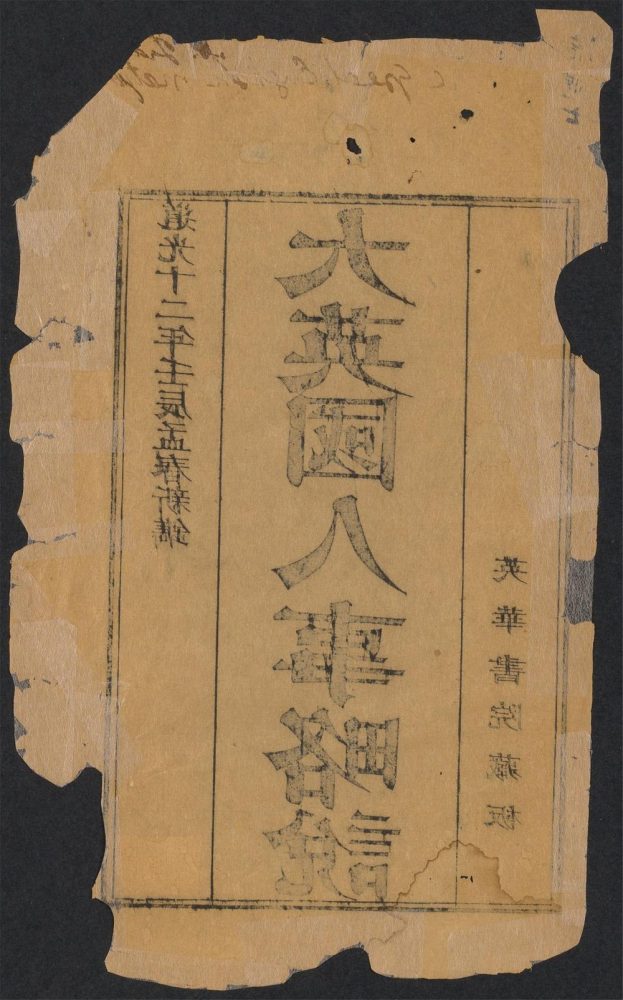 道光十二年壬辰孟春新鐫
大英國人事略說
英華書院藏板